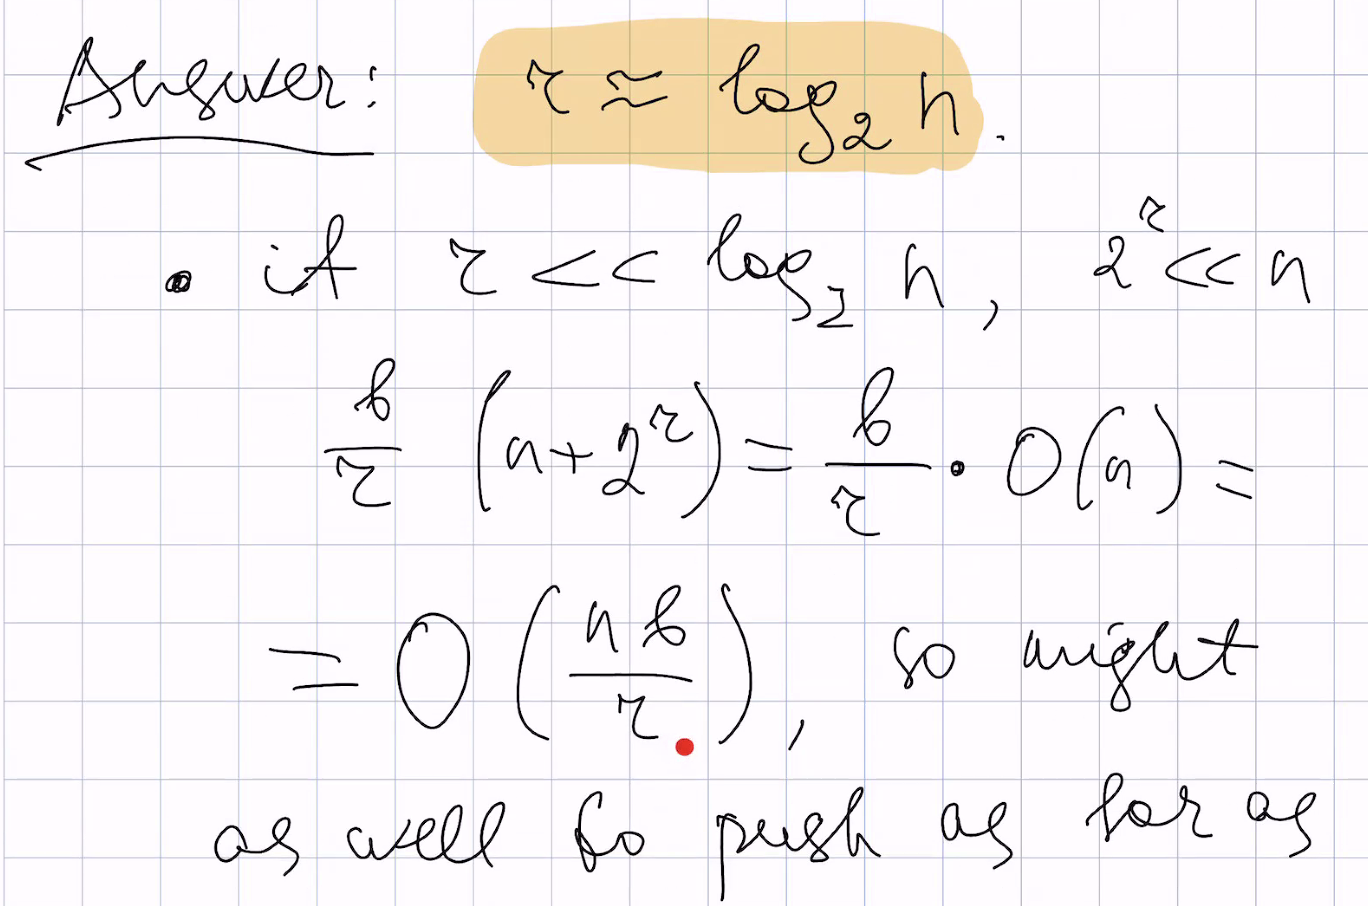 Answer: r ≈ log₂ n.
• if r << log₂ n, 2^r << n
b/r (n + 2^r) = b/r • O(n) =
= O(nb/r), so might
as well go push as far as